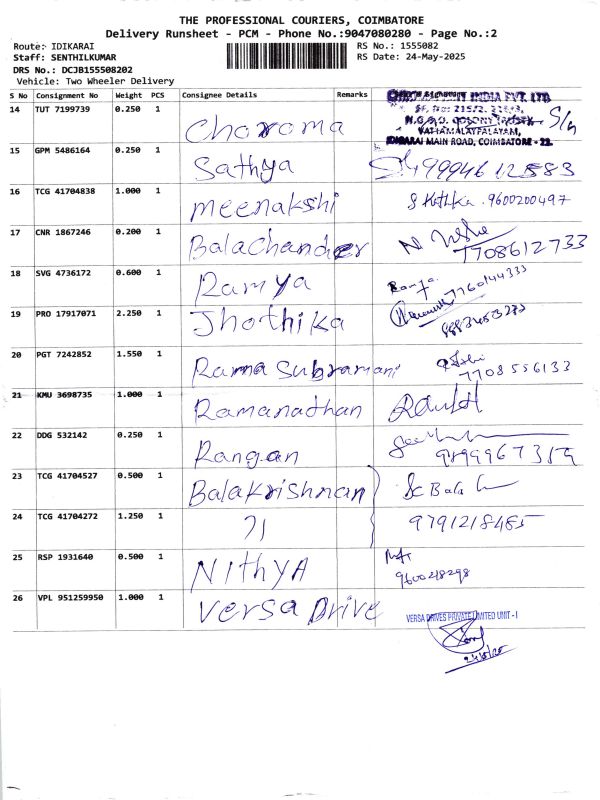 THE PROFESSIONAL COURIERS, COIMBATORE
Delivery Runsheet - PCM - Phone No.:9047080280 - Page No.:2
Route: IDIKARAI
RS No.: 1555082
Staff: SENTHILKUMAR
RS Date: 24-May-2025
DRS No.: DCJB155508202
Vehicle: Two Wheeler Delivery
S No Consignment No Weight PCS Consignee Details Remarks
14 TUT 7199739 0.250 1 Charoma INDIA PVT. LTD
SF. No: 215/2,
N.G.G.O. COLONY
VATHAMALAIPALAYAM,
IDIGARAI MAIN ROAD, COIMBATORE - 22.
15 GPM 5486164 0.250 1 Sathya 9994612583
16 TCG 41704838 1.000 1 meenakshi 9600200497
17 CNR 1867246 0.200 1 Balachander 7708612733
18 SVG 4736172 0.600 1 Ramya Ramya 7760144333
19 PRO 17917071 2.250 1 Jhothika
20 PGT 7242852 1.550 1 Rama Subramani 7708556133
21 KMU 3698735 1.000 1 Ramanathan
22 DDG 532142 0.250 1 Rangan
23 TCG 41704527 0.500 1 Balakrishnan Bala
24 TCG 41704272 1.250 1 9791218485
25 RSP 1931640 0.500 1 NithyA 9600218298
26 VPL 951259950 1.000 1 Versa Drive VERSA DRIVES PRIVATE LIMITED UNIT - I
24/5/25